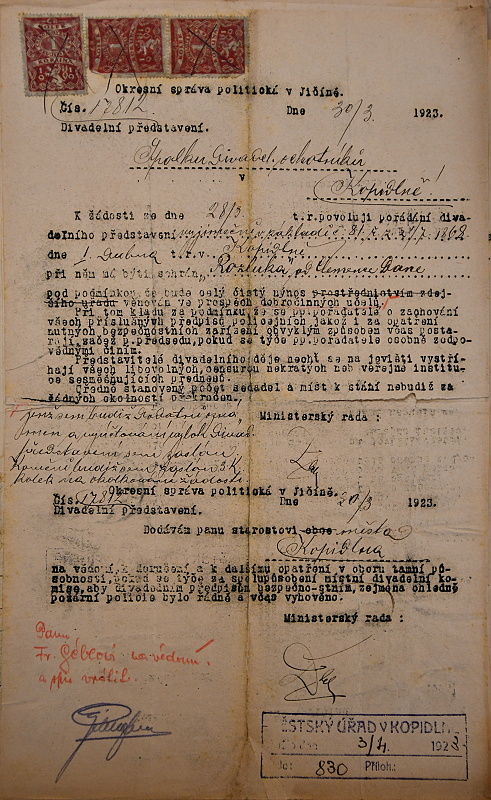 Okresní správa politická v Jičíně.
čís. 17812 Dne 30/3 1923.
Divadelní představení.
Spolku Divadel. ochotníků
v
Kopidlně!
K žádosti ze dne 28/3 t.r. povoluji pořádání diva-
delního představení výjimečně v základě č. 81/ z
dne 1. Dubna t.r. v Kopidlně
při něm má býti sehrán „Rozluka" od Clemence Dane
pod podmínkou, že bude celý čistý výnos prostřednictvím zdej-
šího úřadu věnován ve prospěch dobročinných účelů.
Při tom kladu za podmínku, že se pp. pořadatelé o zachování
všech příslušných předpisů policejních jakož i za opatření
nutných bezpečnostních zařízení obvyklým způsobem včas posta-
rají, začež p. předseda, pokud se týče pp. pořadatele osobně zodpo-
vědnými činím.
Představitelé divadelního děje nechť se na jevišti vystří-
hají všech libovolných, censurou nekrytých neb veřejné institu-
ce sesměšňujících přednesů.
Úředně stanovený počet sedadel a míst k stání nebudiž za
žádných okolností překročen.
Ministerský rada :
představení sem zaslán
kolek na
Okresní správa politická v Jičíně.
čís. 17812 Dne 30/3 1923.
Divadelní představení.
Dodávám panu starostovi obce města
Kopidlna
na vědomí, k doručení a k dalšímu opatření v oboru tamní pů-
sobnosti, pokud se týče za spolupůsobení místní divadelní ko-
mise, aby divadelním předpisům bezpečnostním, zejména ohledně
požární policie bylo řádně a včas vyhověno.
Ministerský rada :
Panu
Fr. na vědomí.
a zpět vrátit.
ĚSTSKÝ ÚŘAD V KOPIDLN
3/4. 1923
830 Příloh: